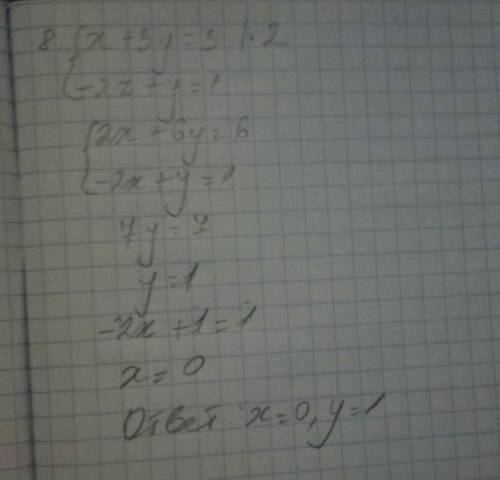 8 {x + 3y = 3 | · 2
{-2x + y = 1
{2x + 6y = 6
{-2x + y = 1
7y = 7
y = 1
-2x + 1 = 1
x = 0
Ответ: x = 0, y = 1